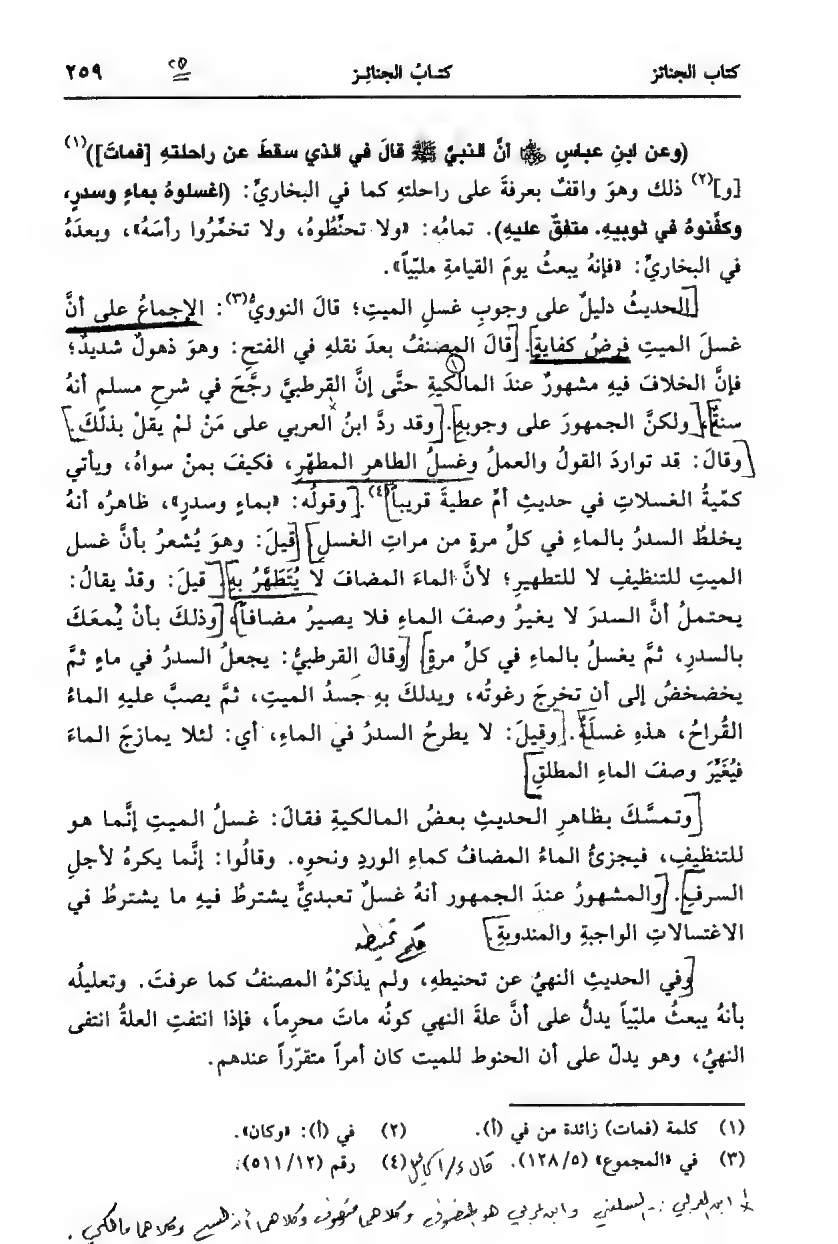 كتاب الجنائز كتـابُ الجنائِـز ٢٥ ٢٥٩
(وعن ابنِ عباسٍ ﷺ أنَّ النبيَّ ﷺ قالَ في الذي سقطَ عن راحلتهِ [فماتَ])(١)
[و](٢) ذلك وهوَ واقفٌ بعرفةَ على راحلتهِ كما في البخاريِّ: (اغسلوهُ بماءٍ وسدرٍ،
وكفِّنوهُ في ثوبيهِ. متفقٌ عليهِ). تمامُه: «ولا تحنِّطُوهُ، ولا تخمِّرُوا رأسَهُ»، وبعدَهُ
في البخاريِّ: «فإنهُ يبعثُ يومَ القيامةِ ملبّياً».
الحديثُ دليلٌ على وجوبِ غسلِ الميتِ؛ قالَ النوويُّ(٣): الإجماعُ على أنَّ
غسلَ الميتِ فرضُ كفايةٍ. قالَ المصنفُ بعدَ نقلهِ في الفتحِ: وهوَ ذهولٌ شديدٌ؛
فإنَّ الخلافَ فيهِ مشهورٌ عندَ المالكيةِ حتَّى إنَّ القرطبيَّ رجَّحَ في شرحِ مسلمٍ أنهُ
سنةٌ، ولكنَّ الجمهورَ على وجوبهِ. وقد ردَّ ابنُ العربي على مَنْ لمْ يقلْ بذلكَ.
وقالَ: قد تواردَ القولُ والعملُ وغسلُ الطاهرِ المطهّرِ، فكيفَ بمنْ سواهُ، ويأتي
كمّيةُ الغسلاتِ في حديثِ أمِّ عطيةَ قريباً(٤). وقولُه: «بماءٍ وسدرٍ»، ظاهرُه أنهُ
يخلطُ السدرُ بالماءِ في كلِّ مرةٍ من مراتِ الغسلِ قيلَ: وهوَ يُشعرُ بأنَّ غسل
الميتِ للتنظيفِ لا للتطهيرِ؛ لأنَّ الماءَ المضافَ لا يُتَطَهَّرُ بهِ قيلَ: وقدْ يقالُ:
يحتملُ أنَّ السدرَ لا يغيرُ وصفَ الماءِ فلا يصيرُ مضافاً، وذلكَ بأنْ يُمعَكَ
بالسدرِ، ثمَّ يغسلُ بالماءِ في كلِّ مرةٍ وقالَ القرطبيُّ: يجعلُ السدرُ في ماءٍ ثمَّ
يخضخضُ إلى أن تخرجَ رغوتُه، ويدلكَ بهِ جَسدُ الميتِ، ثمَّ يصبَّ عليهِ الماءُ
القُراحُ، هذهِ غسلَةٌ. وقيلَ: لا يطرحُ السدرُ في الماءِ، أي: لئلا يمازجَ الماءَ
فيُغَيِّرَ وصفَ الماءِ المطلقِ
وتمسَّكَ بظاهرِ الحديثِ بعضُ المالكيةِ فقالَ: غسلُ الميتِ إنَّما هو
للتنظيفِ، فيجزئُ الماءُ المضافُ كماءِ الوردِ ونحوِه. وقالُوا: إنَّما يكرهُ لأجلِ
السرفِ. والمشهورُ عندَ الجمهور أنهُ غسلٌ تعبديٌّ يشترطُ فيهِ ما يشترطُ في
الاغتسالاتِ الواجبةِ والمندوبةِ. حكم تحنيطه
وفي الحديثِ النهيُ عن تحنيطهِ، ولم يذكرْهُ المصنفُ كما عرفتَ. وتعليلُه
بأنهُ يبعثُ ملبّياً يدلُّ على أنَّ علةَ النهي كونُه ماتَ محرِماً، فإذا انتفتِ العلةُ انتفى
النهيُ، وهو يدلّ على أن الحنوط للميت كان أمراً متقرّراً عندهم.
(١) كلمة (فمات) زائدة من في (أ). (٢) في (أ): «وكان».
(٣) في «المجموع» (١٢٨/٥). (٤) رقم (٥١١/١٢).
ابن العربي وابن عربي هو وكلاهما وكلاهما وكلاهما مالكي.